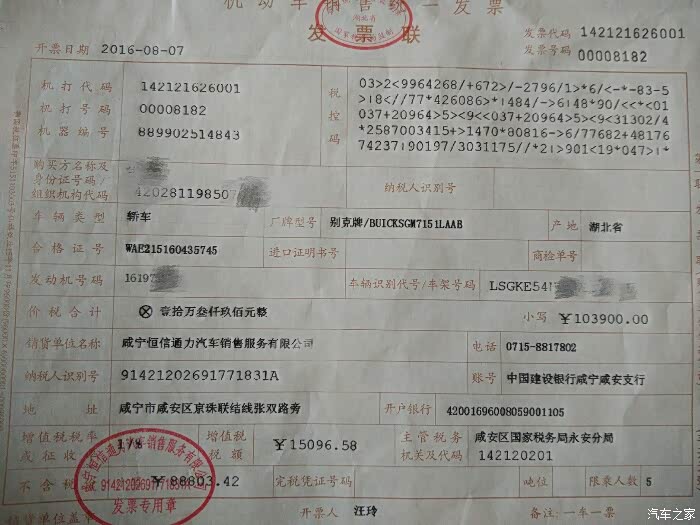 机动车销售统一发票
发票联
发票代码 142121626001
发票号码 00008182
开票日期 2016-08-07
机打代码 142121626001
机打号码 00008182
机器编号 889902514843
税控码
03>2<9964268/+672>/-2796/1>*6/<-*-83-5
>18<//77*426086>*1484/->6148*90/<<*<01
037+20964>5><9<<037+20964>5><9<31302/4
*2587003415+>1470*80816->6/77682+48176
74237190197/3031175//*21>901<19*047>1*
购买方名称及
身份证号码/
组织机构代码 42028119850
纳税人识别号
车辆类型 轿车 厂牌型号 别克牌/BUICKSGM7151LAAB 产地 湖北省
合格证号 WAE215160435745 进口证明书号 商检单号
发动机号码 1619 车辆识别代号/车架号码 LSGKE54
价税合计 ⊗壹拾万叁仟玖佰元整 小写 ¥103900.00
销货单位名称 咸宁恒信通力汽车销售服务有限公司 电话 0715-8817802
纳税人识别号 91421202691771831A 账号 中国建设银行咸宁咸安支行
地址 咸宁市咸安区京珠联结线张双路旁 开户银行 42001696008059001105
增值税税率
或征收率 17%
增值税
税额 ¥15096.58
主管税务
机关及代码
咸安区国家税务局永安分局
142120201
不含税 ¥88803.42 完税凭证号码 吨位 限乘人数 5
咸宁恒信通力汽车销售服务有限公司
91421202691771831A
发票专用章
销货单位盖章 开票人 汪玲 备注:一车一票
汽车之家